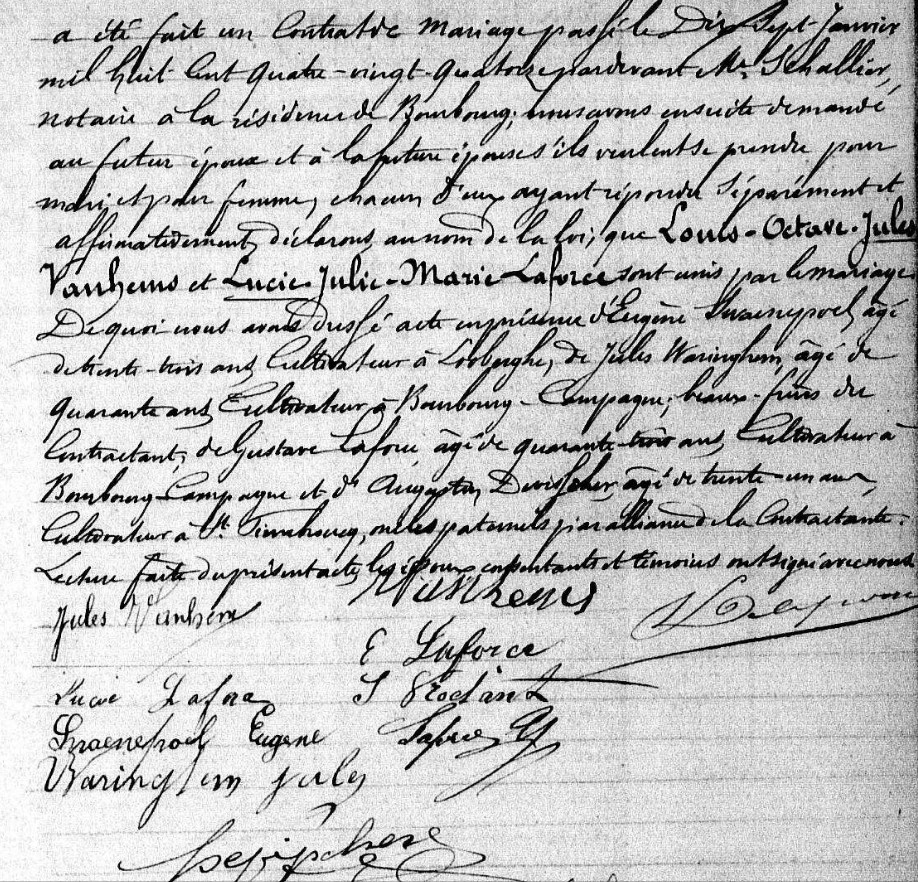 a été fait un Contrat de Mariage passé le Dix Sept Janvier
mil huit Cent quatre-vingt-quatorze pardevant Me Schallier,
notaire à la résidence de Bourbourg; nous avons ensuite demandé
au futur époux et à la future épouse s'ils veulent se prendre pour
mari et pour femme, chacun d'eux ayant répondu séparément et
affirmativement, déclarons au nom de la loi, que Louis-Octave-Jules
Vanhems et Lucie-Julie-Marie Laforce sont unis par le mariage
De quoi nous avons dressé acte en présence d'Eugène Swaenepoel, âgé
de trente-trois ans, Cultivateur à Looberghe, de Jules Waringhem, âgé de
quarante ans, Cultivateur à Bourbourg-Campagne, beaux-frères du
Contractant, de Gustave Laforce, âgé de quarante-trois ans, Cultivateur à
Bourbourg-Campagne et d' Augustin Devisscher, âgé de trente-un ans,
Cultivateur à St. Pierrebroucq, oncles paternels par alliance de la Contractante.
Lecture faite du présent acte, les époux, consentants et témoins ont signé avec nous
Jules Vanhems Vanhems
E Laforce
Lucie Laforce
Swaenepoel Eugène Laforce G
Waringhem jules